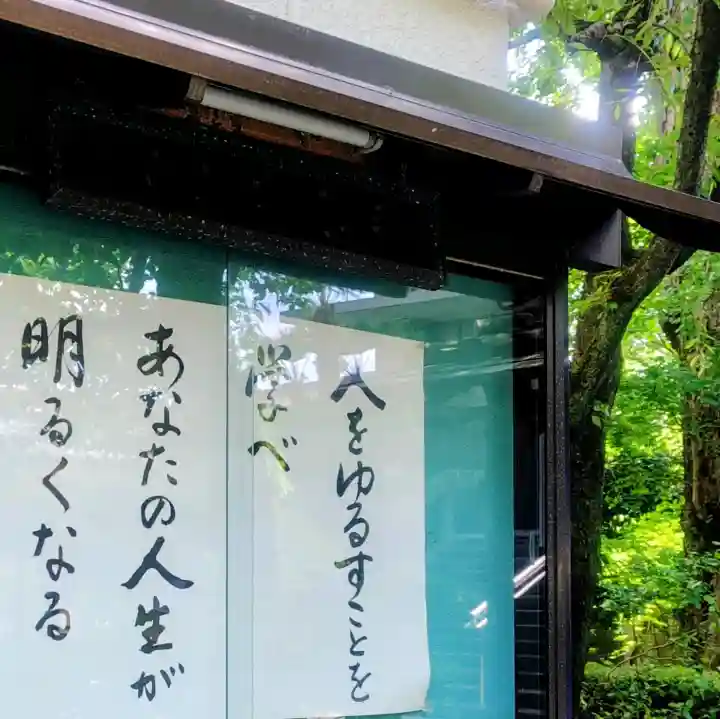 人をゆるすことを
学べ
あなたの人生が
明るくなる